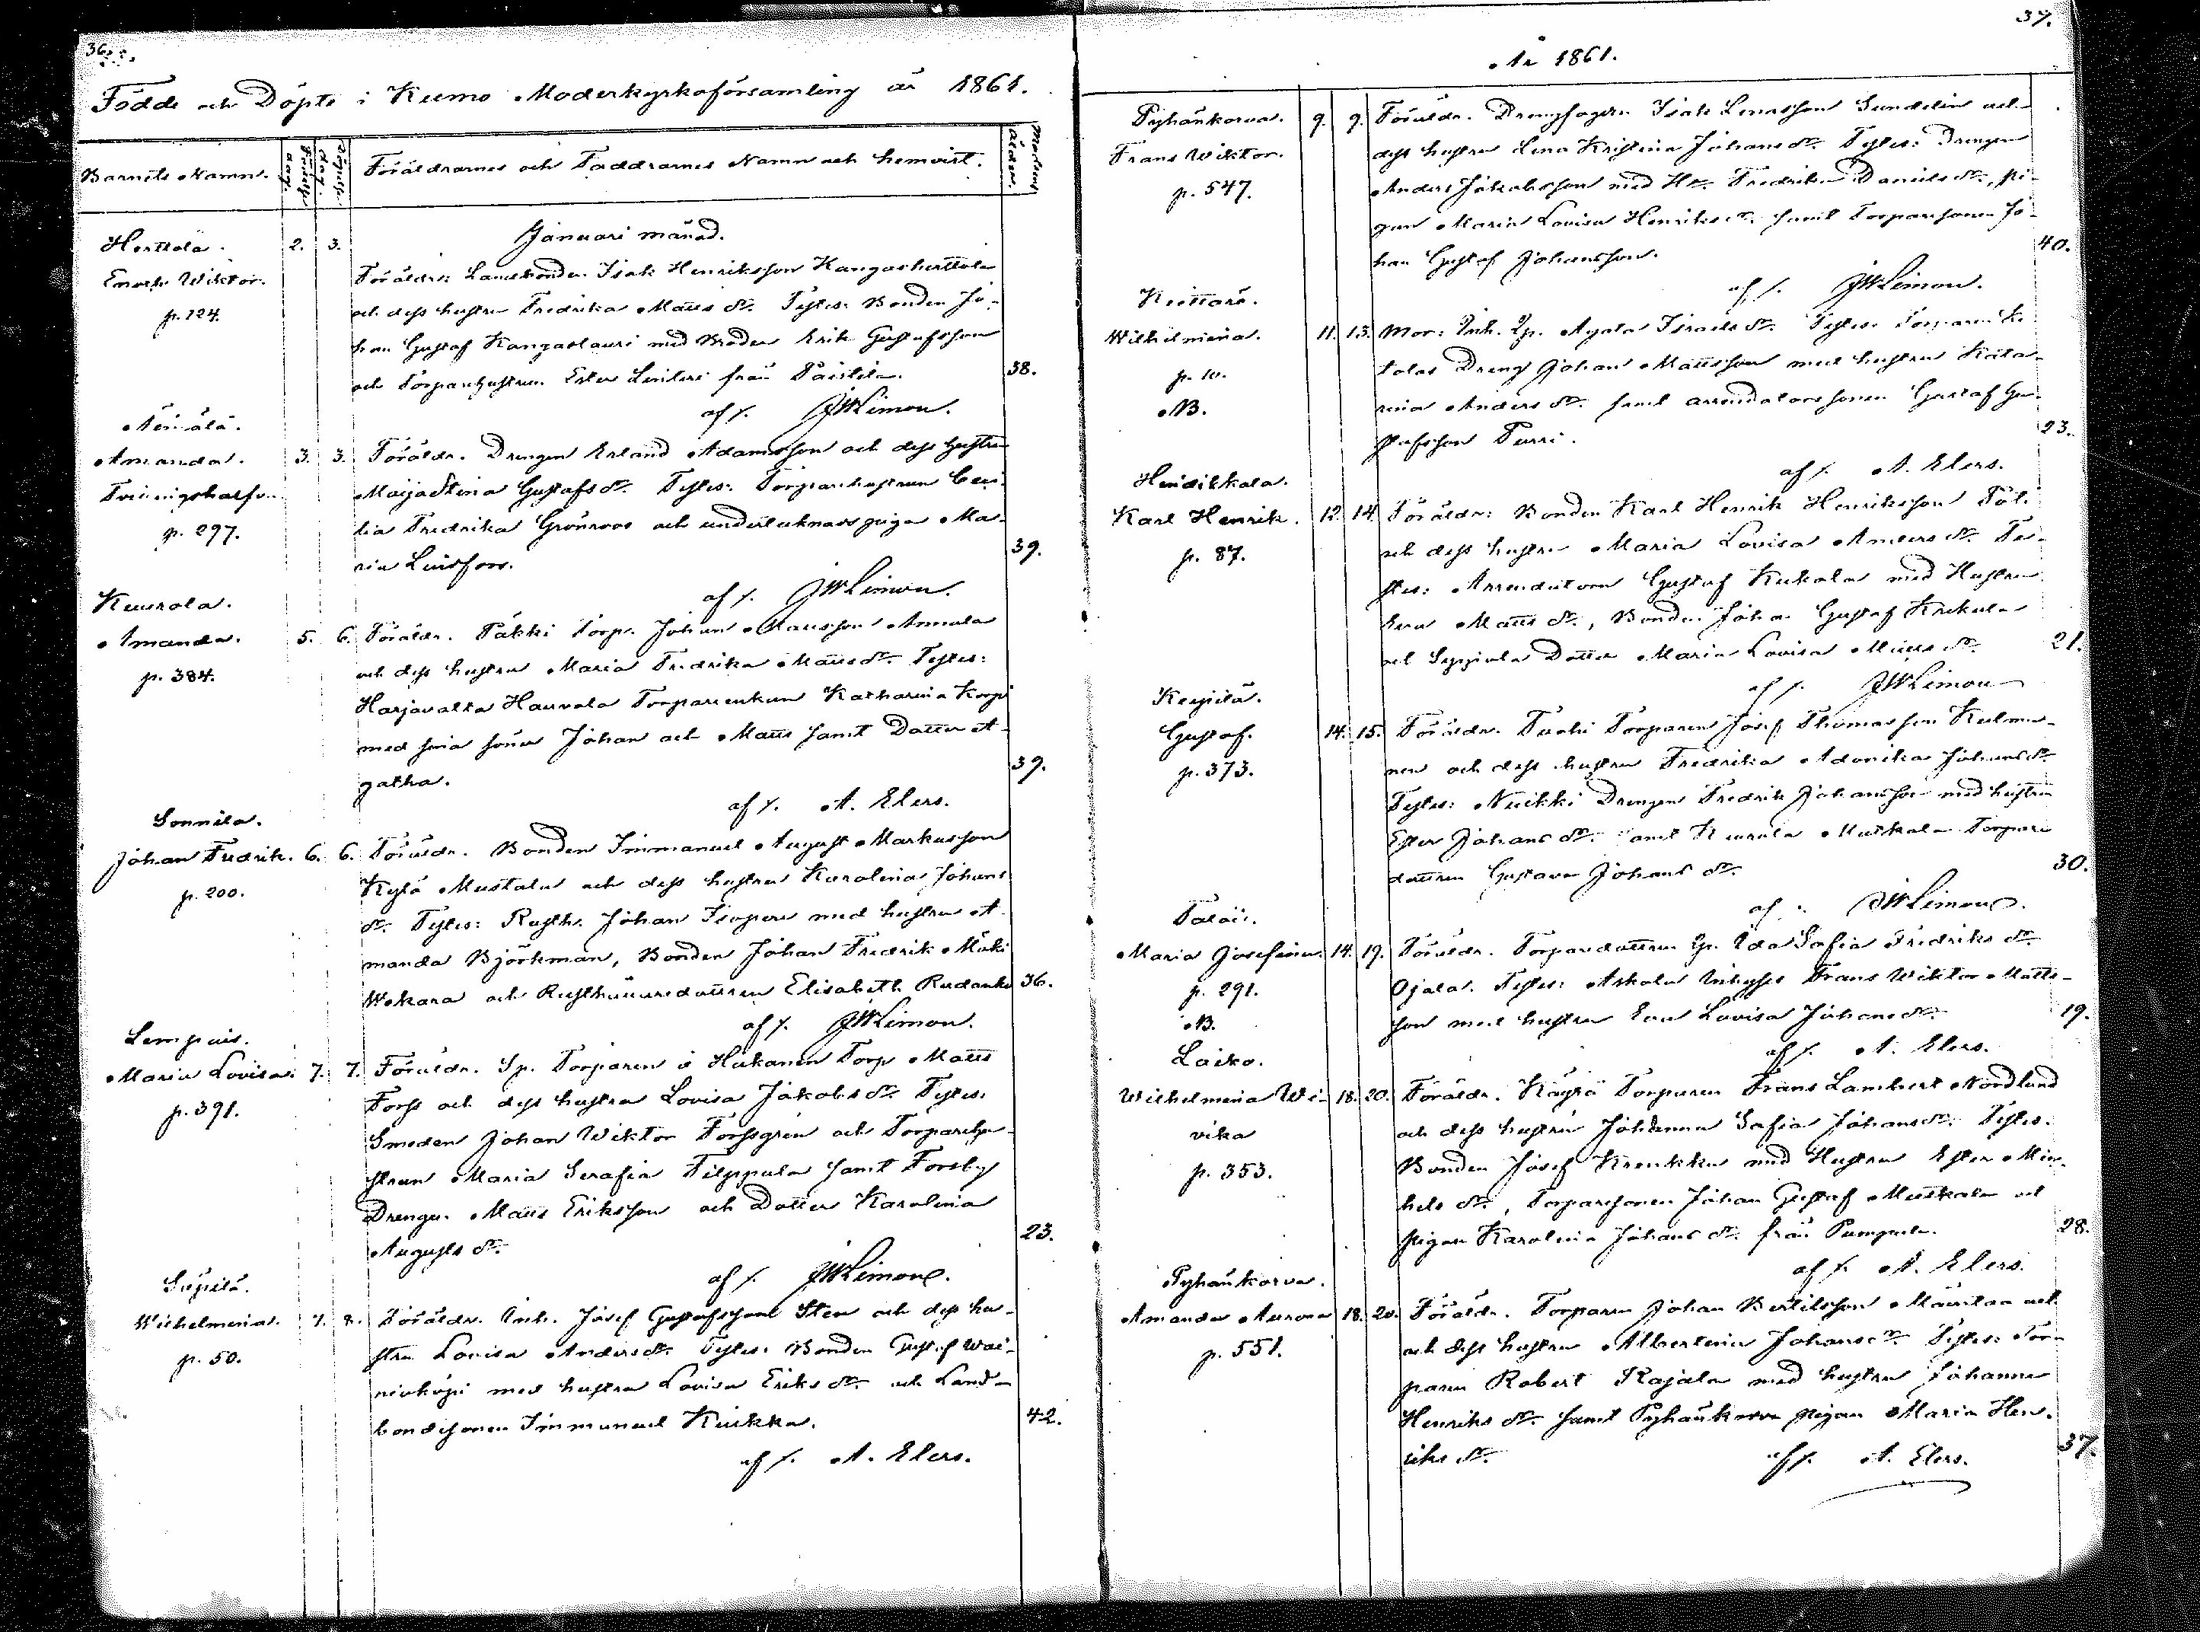 36.
Födde och Döpte i Kumo Moderkyrkoförsamling år 1861.
Barnets Namn.
Födelse dag.
dag.
Föräldrarnes och Faddrarnes Namn och hemvist.
Modrens ålder.
Januari månad.
Herttola. 2. 3.
Enoch Wiktor.
p. 124.
Föräldr: Landbonden Isak Henriksson Kangasherttola
och dess hustru Fredrika Matts dr. Testes: Bonden Jo-
han Gustaf Kangaslauri med Broder Erik Gustafsson
och Torparhustrun Ester från 38.
af f. JWLimon.
Äimälä.
Amanda. 3. 3. Föräldr. Drengen Erland Adamsson och dess hustru
Tvillingshalfva
p. 297.
Majastina Gustafs dr. Testes: Torparhustrun Ceci-
lia Fredrika Grönroos och piga Ma-
ria 39.
af f. JWLimon.
Keurola.
Amanda. 5. 6. Föräldr. Päkki Torp. Johan Mattsson Annala
p. 384.
och dess hustru Maria Fredrika Matts dr. Testes:
Harjavalta Hauvola Torparenkan Katharina Korpi
med sina söner Johan och Matts samt Dotter A-
gatha. 39.
af f. A. Elers.
Sonnila.
Johan Fredrik. 6. 6. Föräldr. Bonden Immanuel August Markusson
p. 200.
Kylä Mustala och dess hustru Karolina Johans
dr. Testes: Rusth. Johan Isopere med hustru A-
manda Björkman, Bonden Johan Fredrik Mäki
Wokara och Rusthållaredottren Elisabeth Rudanko 36.
af f. JWLimon.
Lempais.
Maria Lovisa. 7. 7. Föräldr. Sp. Torparen å Hakanen Torp Matts
p. 391.
Forss och dess hustru Lovisa Jakobs dr. Testes:
Smeden Johan Wiktor Forssgrén och Torparehu-
strun Maria Serafia Filppula samt Forsby
Drengen Matts Eriksson och Dotter Karolina
Augusts dr. 23.
af f. JWLimon.
Säpilä.
Wilhelmina. 7. 8. Föräldr. Inh. Josef Gustafsson Sten och dess hu-
p. 50.
stru Lovisa Anders dr. Testes: Bonden Gustaf Wai-
nioköpi med hustru Lovisa Eriks dr. och Land-
bondesonen Immanuel Kuikka. 42.
af f. A. Elers.
37.
År 1861.
Pyhänkorva. 9. 9. Föräldr. Drengfogden Isak Sundelin och
Frans Wiktor.
p. 547.
dess hustru Lena Kristina Johans dr. Testes: Drengen
Anders Jakobsson med H. Fredrika Daniels dr., pi-
gan Maria Lovisa Henriks dr. samt Torparsonen Jo-
han Gustaf Johansson. 40.
af f. JWLimon.
Kiettare.
Wilhelmina. 11. 13. Mor: Inh. Qp. Agata Israels dr. Testes:
p. 10.
NB.
Dreng Johan Mattsson med hustru Kata-
rina Anders dr. samt arrendatorssonen Gustaf Gu-
stafsson Purri. 23.
af f. A. Elers.
Hindikkala.
Karl Henrik. 12. 14. Föräldr: Bonden Karl Henrik Henriksson
p. 87.
och dess hustru Maria Lovisa Anders dr. Te-
stes: Arrendatorn Gustaf Kukola med Hustru
Eva Matts dr., Bonden Johan Gustaf Kukula
och Seppiala Dotter Maria Lovisa Matts dr. 21.
af f. JWLimon
Keipilä.
Gustaf. 14. 15. Föräldr. Torparen Josef Thomasson Kulma-
p. 373.
nen och dess hustru Fredrika Adonika Johans dr.
Testes: Nuikki Drengen Fredrik Johansson med hustru
Ester Johans dr. samt Keurola Matkala Torpare
dottren Gustava Johans dr. 30.
af f. JWLimon.
Maria Josefina. 14. 19. Föräldr. Torparedottren Qp. Ida Sofia Fredriks dr.
p. 291.
NB.
Ojala. Testes: Askola Inhyses Frans Wiktor Matts-
son med hustru Eva Lovisa Johans dr. 19.
af f. A. Elers.
Laiko.
Wilhelmina Wi- 18. 20. Föräldr. Torparen Frans Lambert Nordlund
vika
p. 353.
och dess hustru Johanna Sofia Johans dr. Testes.
Bonden Josef Krenkku med Hustru Ester Mic-
hels dr., Torparesonen Johan Gustaf Mustkala och
pigan Karolina Johans dr. från 28.
af f. A. Elers.
Pyhänkorva.
Amanda Aurora 18. 20. Föräldr. Torparen Johan Bertilsson och
p. 551.
och dess hustru Albertina Johans dr. Testes: Tor-
paren Robert Rajala med hustru Johanna
Henriks dr. samt Pyhänkorva pigan Maria Hen-
riks dr. 37.
af f. A. Elers.